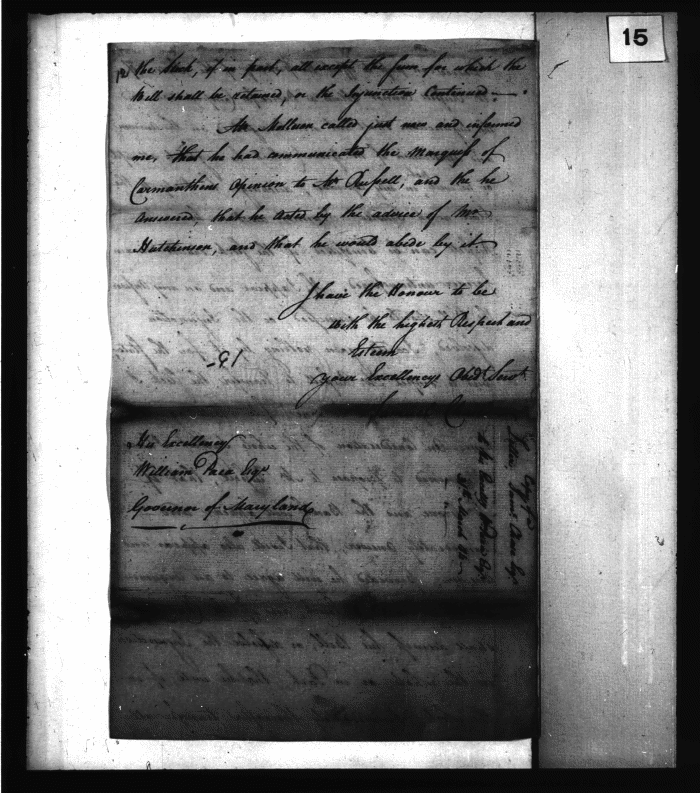 15
the Stock, if in part, all except the sum for which the
Bill shall be retained, or the Injunction Continued —
Mr Molleson called just now and informed
me, that he had communicated the Marquiss of
Carmanthens Opinion to Mr Russell, and the he
answered that he acted by the advice of Mr
Hutchinson, and that he would abide by it
I have the Honour to be
with the highest Respect and
Esteem
your Excellencys Obedt Servt
His Excellency
William Paca Esqr
Governor of Maryland
Copy of a
Letter